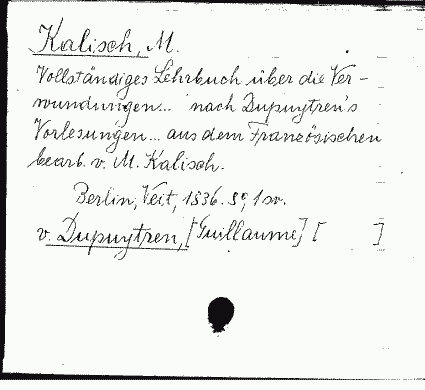 Kalisch, M.
Vollständiges Lehrbuch über die Ver-
wundungen... nach Dupuytren's
Vorlesungen... aus dem Französischen
bearb. v. M. Kalisch.
Berlin, Veit, 1836. 8°, 1 sv.
v. Dupuytren, [Guillaume] [ ]